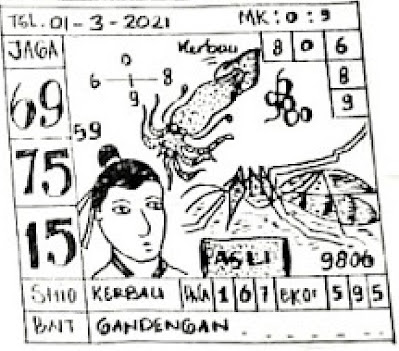 TGL. 01-3-2021 MK: 0: 9
JAGA Kerbau 8 0 6
0
6 8 8
9 9
69
59
75
15
ASLI 9806
SHIO KERBAU 1 6 7 EKOR 5 9 5
BNT GANDENGAN